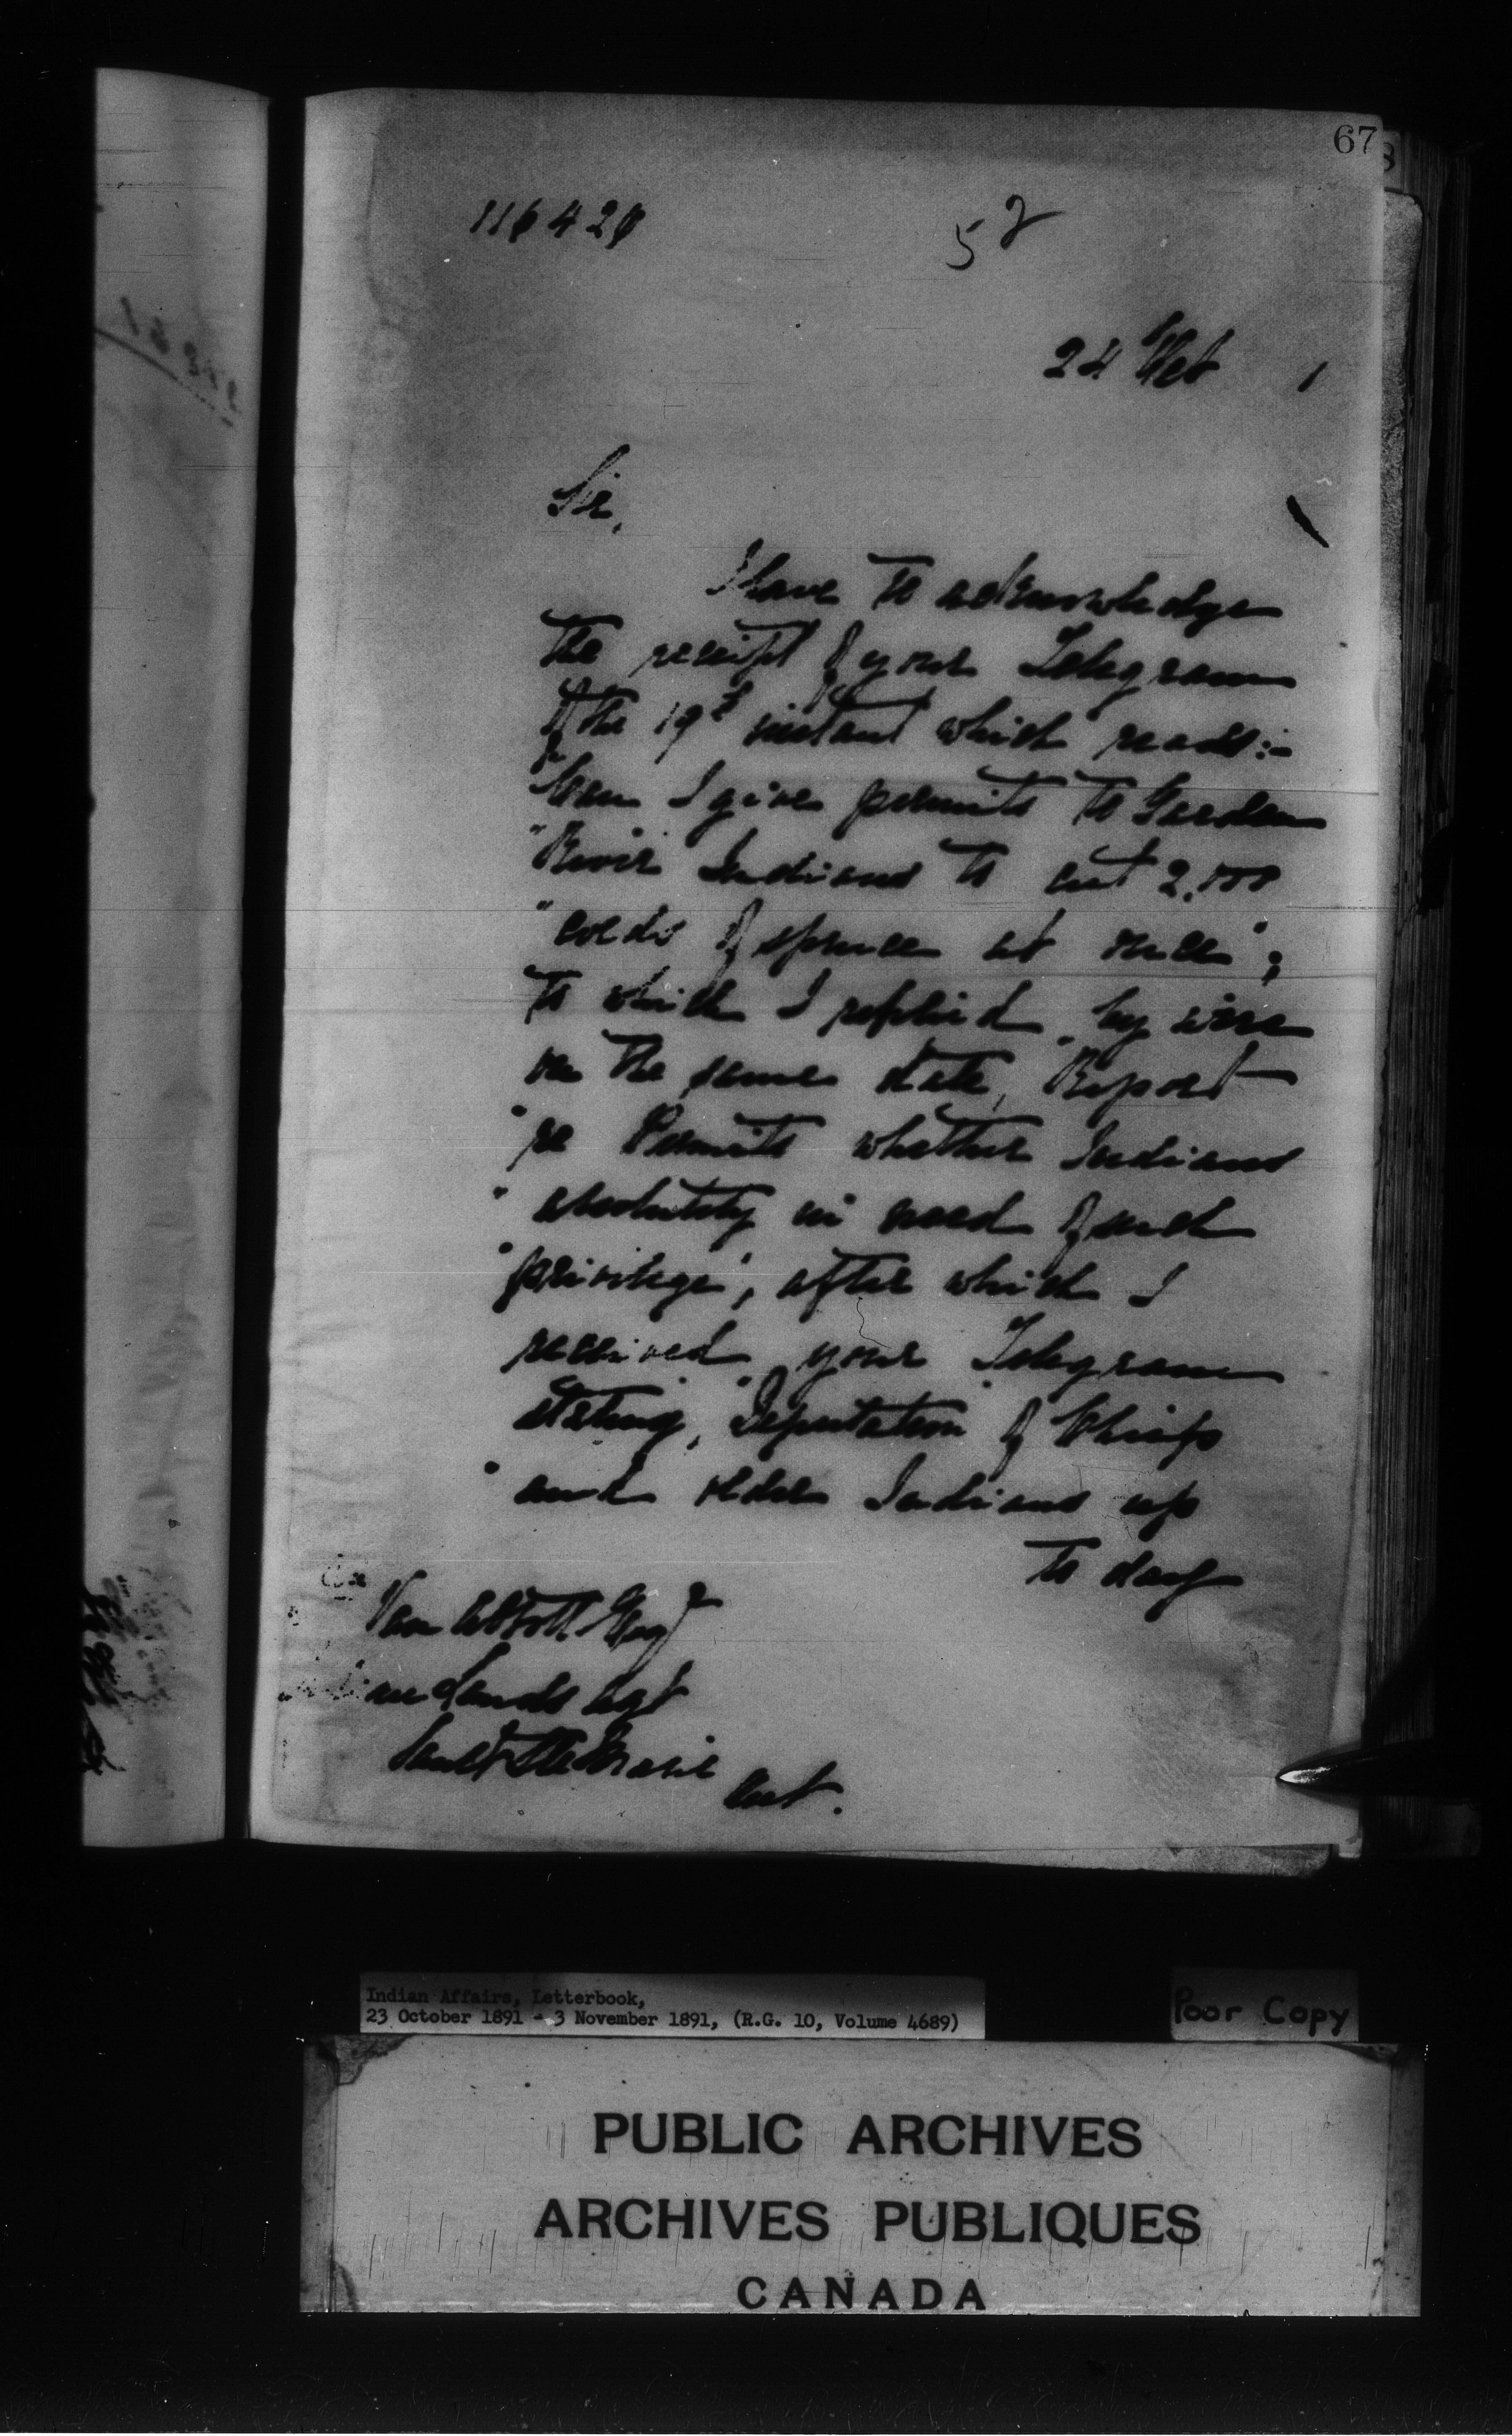 67
116420
52
24 Oct 1
Sir,
I have to acknowledge
the receipt of your Telegram
of the 19th instant which reads:-
"Can I give permits to Garden
"River Indians to cut 2,000
"cords of spruce at once";
to which I replied by wire
on the same date, "Report
"re Permits whether Indians
"absolutely in need of such
"privilege", after which I
received your Telegram
stating, "Deputation of Chiefs
"and older Indians up
to day
Van Abbott Esqr
ian Lands Agt
Sault Ste Marie
Ont.
Indian Affairs, Letterbook,
23 October 1891 - 3 November 1891, (R.G. 10, Volume 4689)
Poor Copy
PUBLIC ARCHIVES
ARCHIVES PUBLIQUES
CANADA